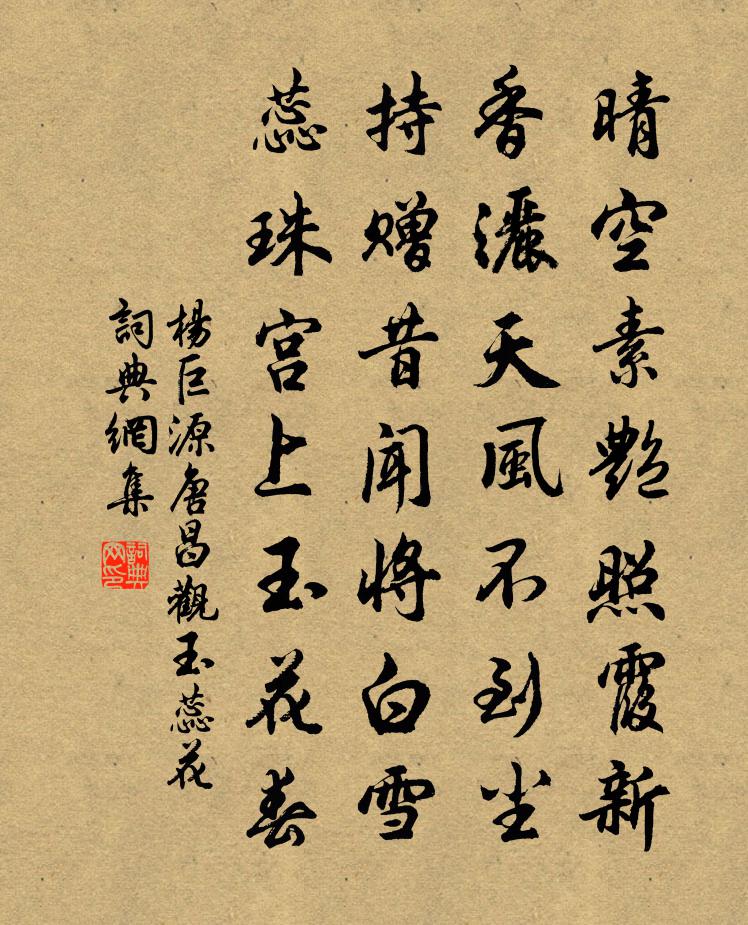 晴空素艷照霞新
香灑天風不到尘
持赠昔闻將白雪
蕊珠宫上玉花春
楊巨源唐昌觀玉蕊花
詞典網集
詞典网印